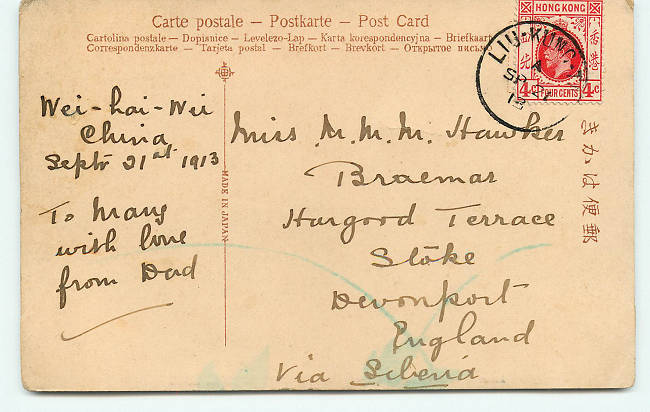 Carte postale – Postkarte – Post Card
Cartolina postale – Dopisnice – Levelezo-Lap – Karta korespondencyjna – Briefkaart
Correspondenzkarte – Tarjeta postal – Brefkort – Brevkort – Открытое письмо
HONG KONG
香港
4c FOUR CENTS 4c
LIU-KUNG-
A
SP 21
13
Wei-hai-Wei
China
Septr 21st 1913
To Mary
with love
from Dad
MADE IN JAPAN
Miss M. M. M. Hawker
Braemar
Hargood Terrace
Stoke
Devonport
England
Via Siberia
きかは便郵